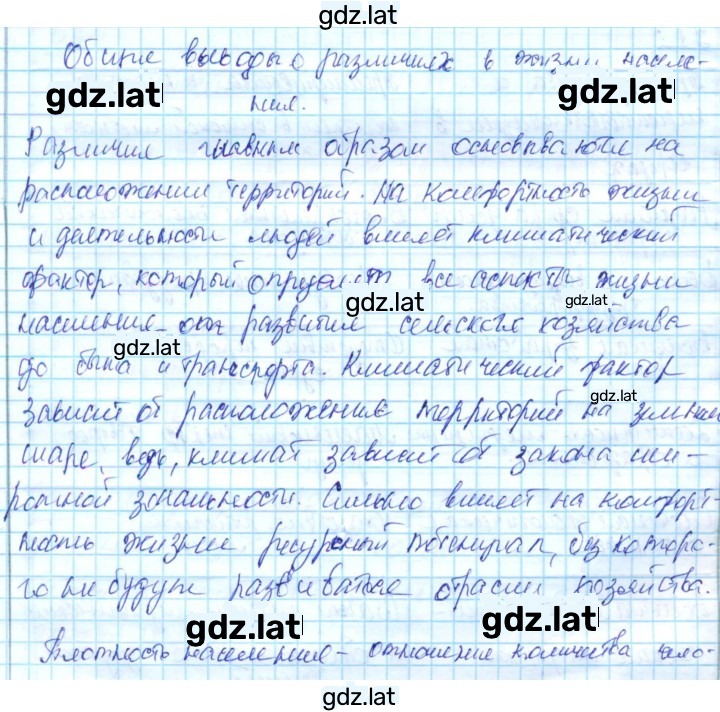 gdz.lat
Общие выводы о различиях в жизни населе-
gdz.lat gdz.lat
ния.
Различия главным образом основываются на
расположении территорий. На комфортность жизни
и деятельности людей влияет климатический
фактор, который определяет все аспекты жизни
gdz.lat gdz.lat
населения - от развития сельского хозяйства
gdz.lat
до быта и транспорта. Климатический фактор
gdz.lat
зависит от расположения территорий на земном
шаре, ведь, климат зависит от закона ши-
ротной зональности. Сильно влияет на комфорт-
ность жизни ресурсный потенциал, без которо-
го не будут развиваться отрасли хозяйства.
gdz.lat gdz.lat
Плотность населения - отношение количества чело-
gdz.lat